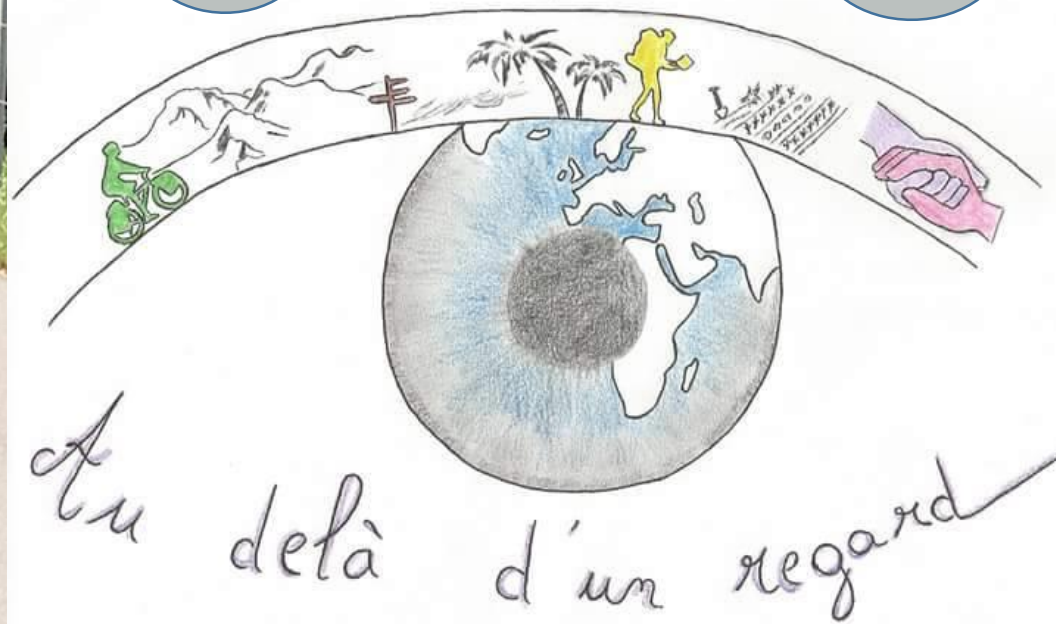 Au delà d'un regard